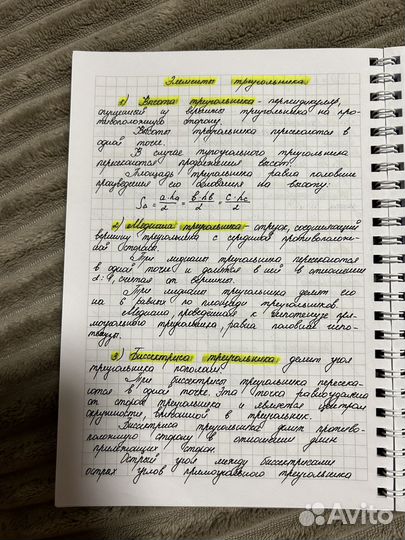 Элементы треугольника.
1) Высота треугольника - перпендикуляр,
опущенный из вершины треугольника на про-
тивоположную сторону.
Высоты треугольника пересекаются в
одной точке.
В случае тупоугольного треугольника
пересекаются продолжения высот.
Площадь треугольника равна половине
произведения его основания на высоту:
S△ = a·ha/2 = b·hb/2 = c·hc/2
2) Медиана треугольника - отрезок, соединяющий
вершину треугольника с серединой противополож-
ной стороны.
Три медианы треугольника пересекаются
в одной точке и делятся в ней в отношении
2:1, считая от вершины.
Три медианы треугольника делят его
на 6 равных по площади треугольников.
Медиана, проведённая к гипотенузе пря-
моугольного треугольника, равна половине гипо-
тенузы.
3) Биссектриса треугольника делит угол
треугольника пополам.
Три биссектрисы треугольника пересека-
ются в одной точке. Эта точка равноудалена
от сторон треугольника и является центром
окружности, вписанной в треугольник.
Биссектриса треугольника делит противо-
положную сторону в отношении длин
прилежащих сторон.
Острый угол между биссектрисами
острых углов прямоугольного треугольника
Avito